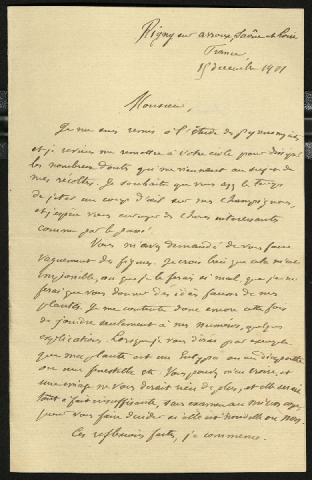 Rigny sur arroux, Saône et Loire
France
15 décembre 1901
Monsieur,
Je me suis remis à l'étude des pyrénomycètes
et je reviens me remettre à votre école pour dissiper
les nombreux doutes qui me viennent au sujet de
mes récoltes. Je souhaite que vous ayez le temps
de jeter un coup d'œil sur mes champignons,
et j'espère vous envoyer des choses intéressantes
comme par le passé.
Vous m'avez demandé de vous faire
vaguement des figures. Je crois bien que cela m'est
impossible, ou que je le ferai si mal, que je ne
ferai que vous donner des idées fausses de mes
plantes. Je me contente donc encore cette fois
de joindre seulement à mes numéros, quelques
explications. Lorsque je vous dirai par exemple
que ma plante est un ou un
ou une vous pouvez m'en croire, et
une image ne vous dirait rien de plus, et elle serait
tout à fait insuffisante, sans examen au microscope
pour vous faire décider si elle est nouvelle ou non.
Ces réflexions faites, je commence.